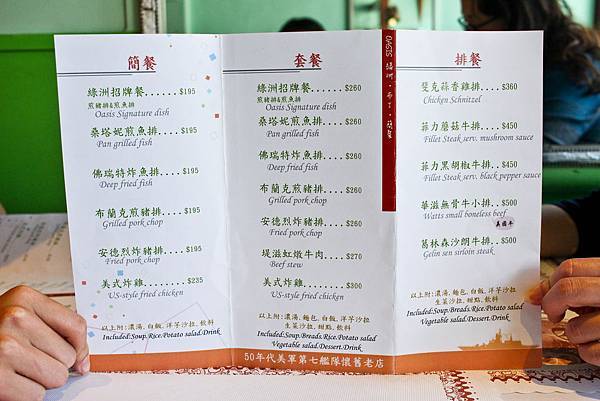 簡餐
綠洲招牌餐......$195
煎豬排&煎魚排
Oasis Signature dish
桑塔妮煎魚排....$195
Pan grilled fish
佛瑞特炸魚排....$195
Deep fried fish
布蘭克煎豬排....$195
Grilled pork chop
安德烈炸豬排....$195
Fried pork chop
美式炸雞........$235
US-style fried chicken
以上附:濃湯,白飯,洋芋沙拉,飲料
Included:Soup.Rice.Potato salad.Drink
套餐
綠洲招牌餐......$260
煎豬排&煎魚排
Oasis Signature dish
桑塔妮煎魚排....$260
Pan grilled fish
佛瑞特炸魚排....$260
Deep fried fish
布蘭克煎豬排....$260
Grilled pork chop
安德烈炸豬排....$260
Fried pork chop
堤滋虹燉牛肉....$270
Beef stew
美式炸雞........$300
US-style fried chicken
以上附:濃湯,麵包,白飯,洋芋沙拉
生菜沙拉,甜點,飲料
Included:Soup.Breads.Rice.Potato salad
Vegetable salad.Dessert.Drink
50年代美軍第七艦隊懷舊老店
OASIS 綠洲·布丁·簡餐
排餐
斐克蒜香雞排....$360
Chicken Schnitzel
菲力蘑菇牛排....$450
Fillet Steak serv. mushroom sauce
菲力黑胡椒牛排..$450
Fillet Steak serv. black pepper sauce
華滋無骨牛小排..$500
Watts small boneless beef
美國牛
葛林森沙朗牛排..$500
Gelin sen sirloin steak
以上附:濃湯,麵包,白飯,洋芋沙拉
生菜沙拉,甜點,飲料
Included:Soup.Breads.Rice.Potato salad
Vegetable salad.Dessert.Drink